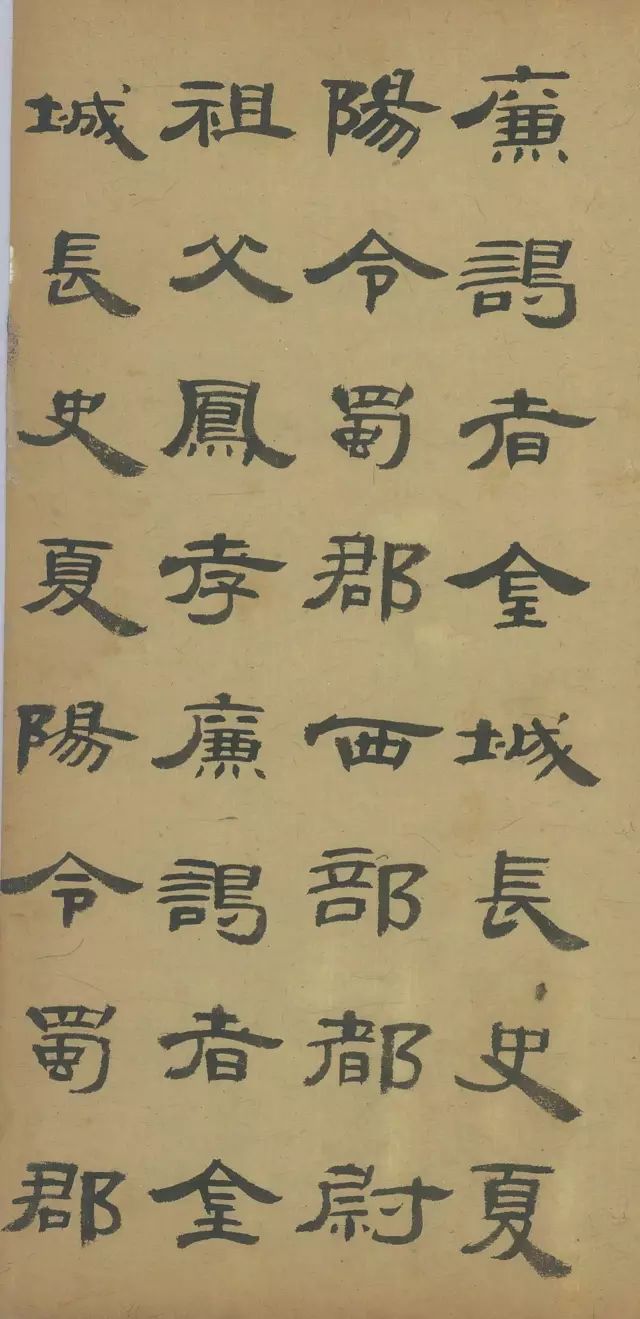 廉謁者金城長史夏
陽令蜀郡西部都尉
祖父鳳孝廉謁者金
城長史夏陽令蜀郡